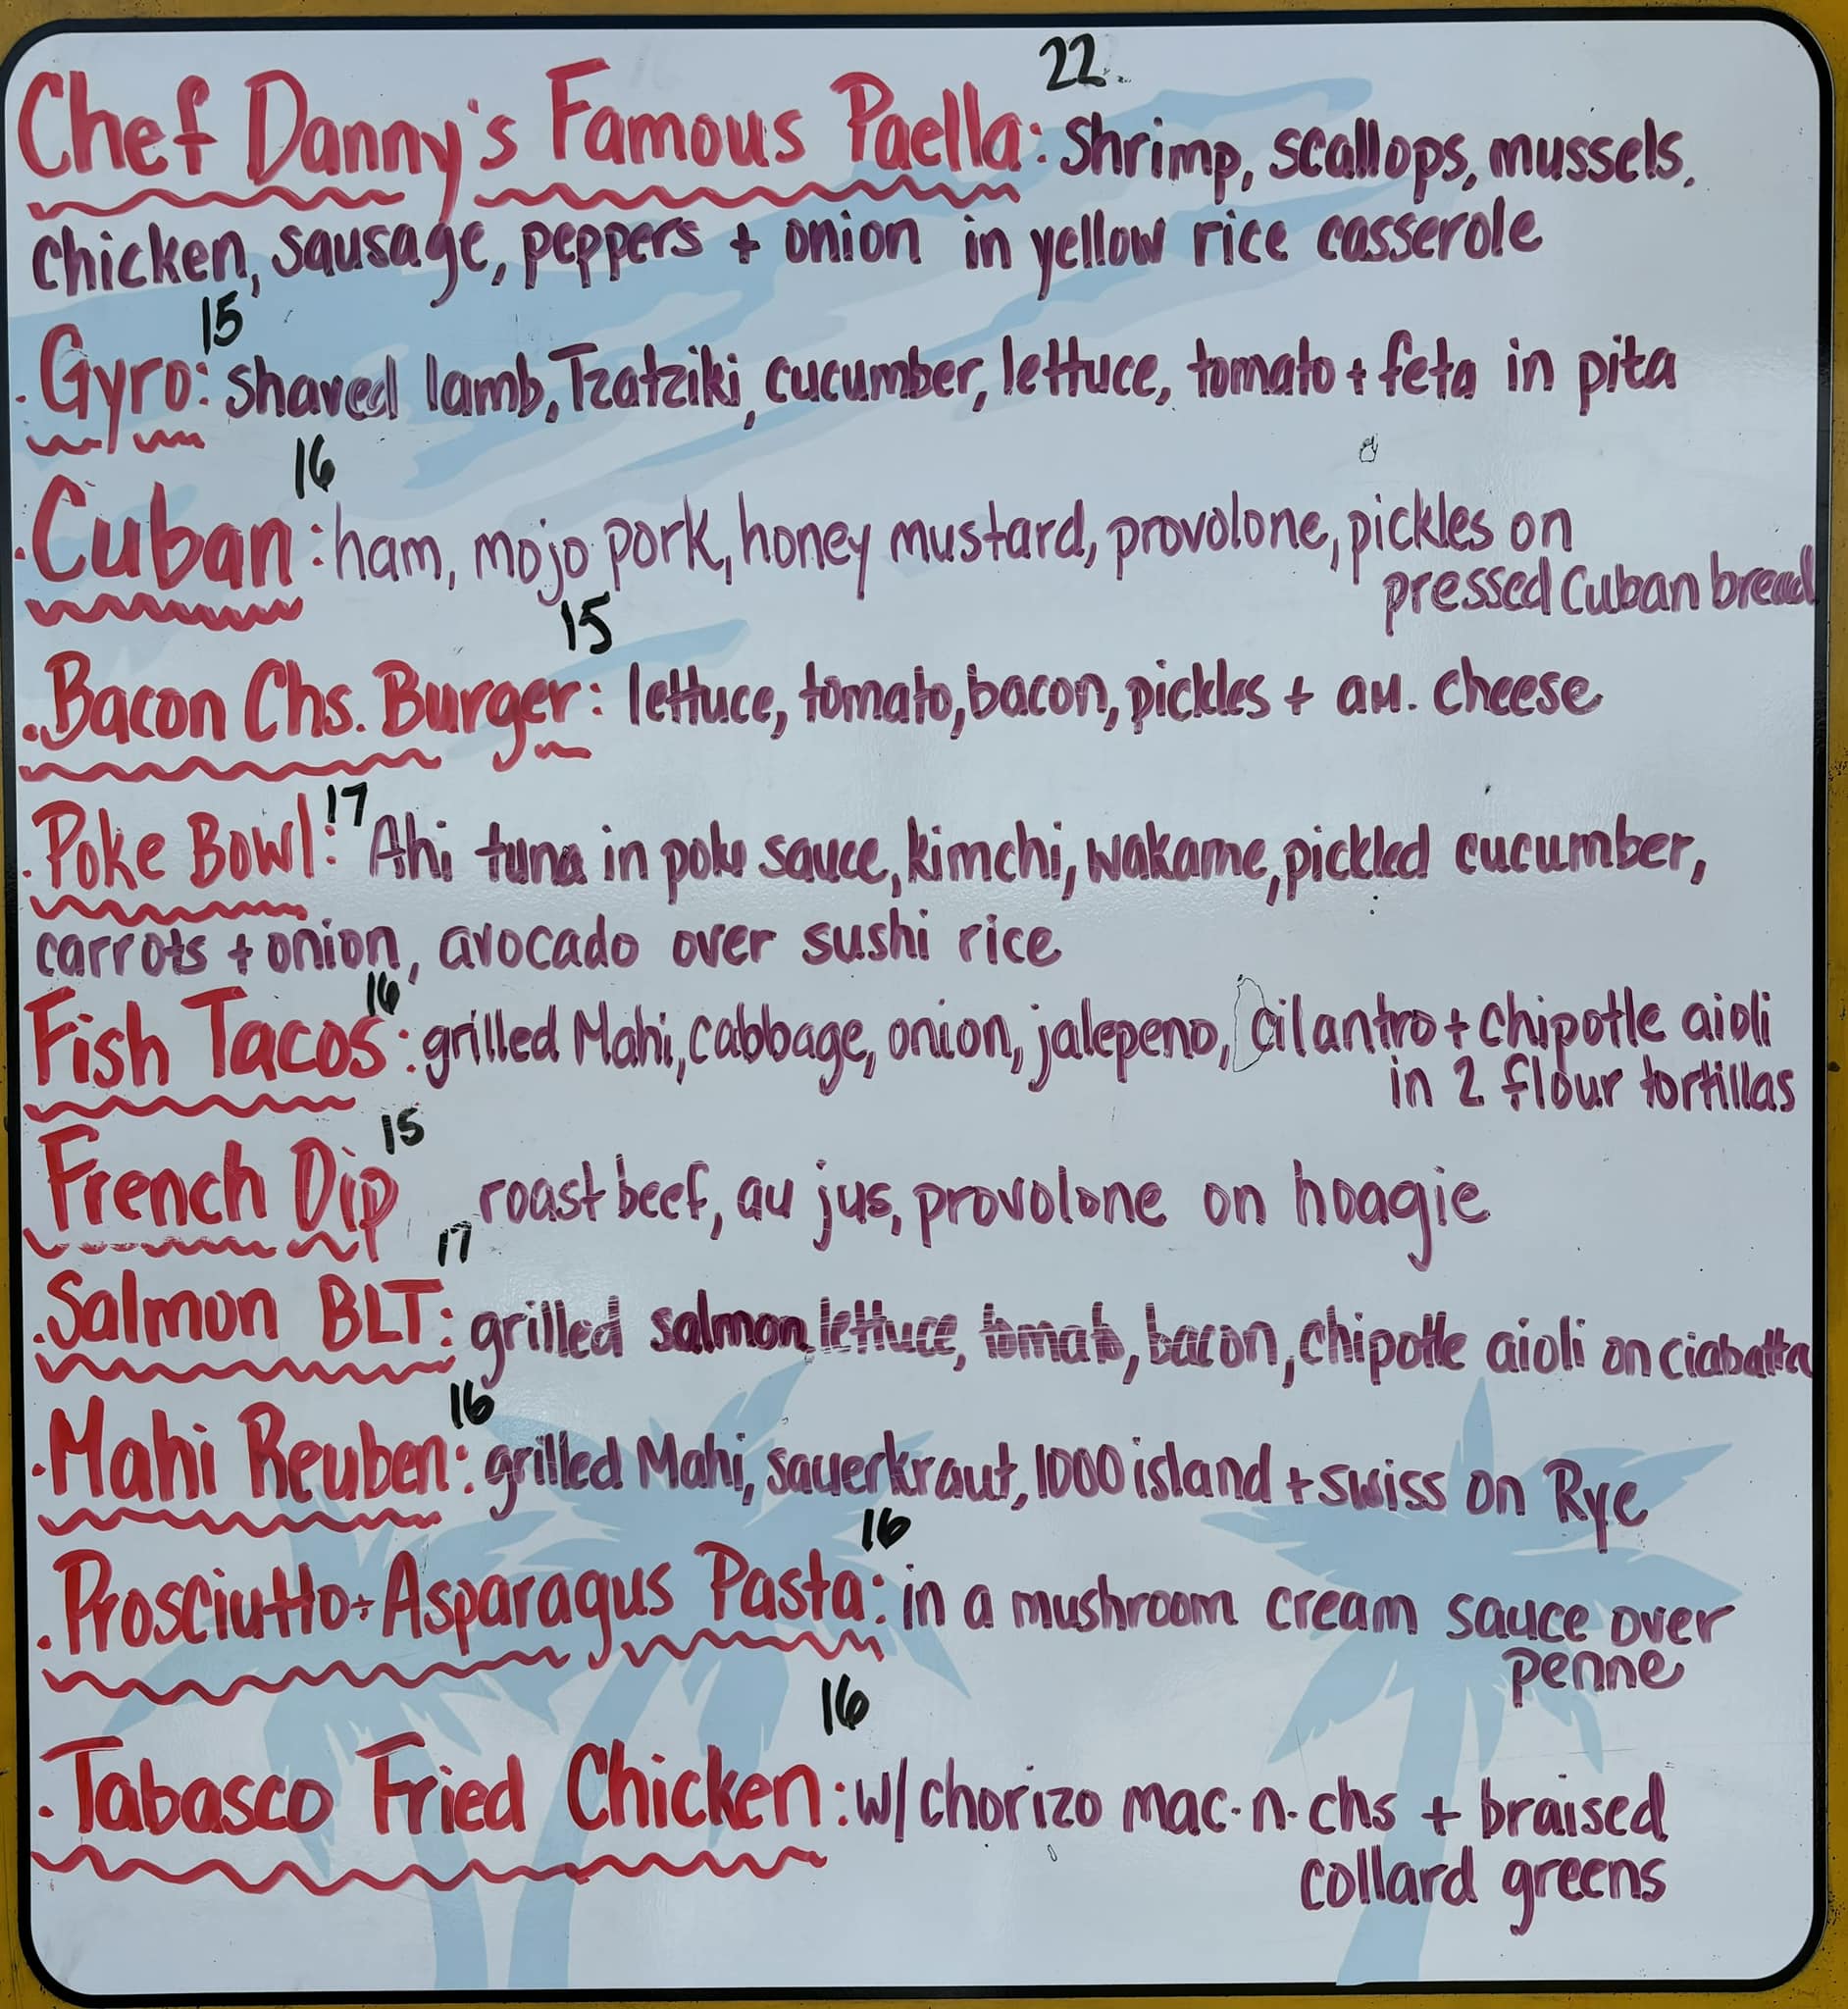 22
Chef Danny's Famous Paella: Shrimp, scallops, mussels,
chicken, sausage, peppers + onion in yellow rice casserole
15
· Gyro: shaved lamb, Tzatziki, cucumber, lettuce, tomato + feta in pita
16
· Cuban: ham, mojo pork, honey mustard, provolone, pickles on
pressed Cuban bread
15
· Bacon Chs. Burger: lettuce, tomato, bacon, pickles + am. cheese
17
· Poke Bowl: Ahi tuna in poke sauce, kimchi, wakame, pickled cucumber,
carrots + onion, avocado over sushi rice
16
Fish Tacos: grilled Mahi, cabbage, onion, jalepeno, cilantro + chipotle aioli
in 2 flour tortillas
15
French Dip roast beef, au jus, provolone on hoagie
17
· Salmon BLT: grilled salmon, lettuce, tomato, bacon, chipotle aioli on ciabatta
16
· Mahi Reuben: grilled Mahi, sauerkraut, 1000 island + swiss on Rye
16
· Prosciutto + Asparagus Pasta: in a mushroom cream sauce over
penne
16
· Tabasco Fried Chicken: w/ chorizo mac·n·chs + braised
collard greens